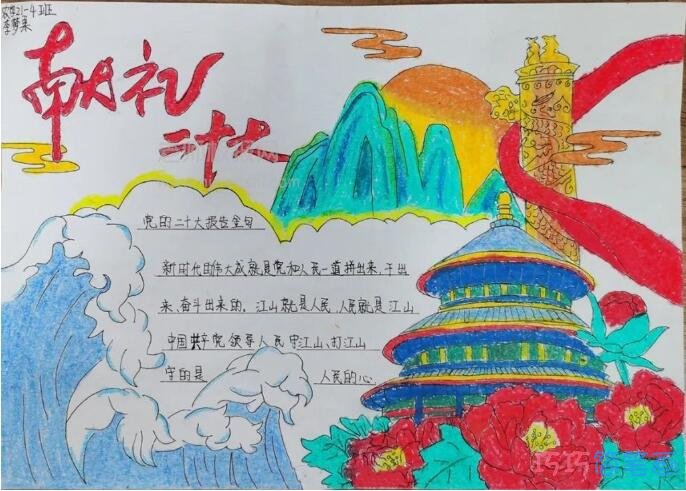 农世21-4班
李梦果
献礼
二十大
党的二十大报告金句
新时代的伟大成就是党和人民一道拼出来、干出
来、奋斗出来的。江山就是人民，人民就是江山
中国共产党领导人民打江山、守江山
守的是 人民的心